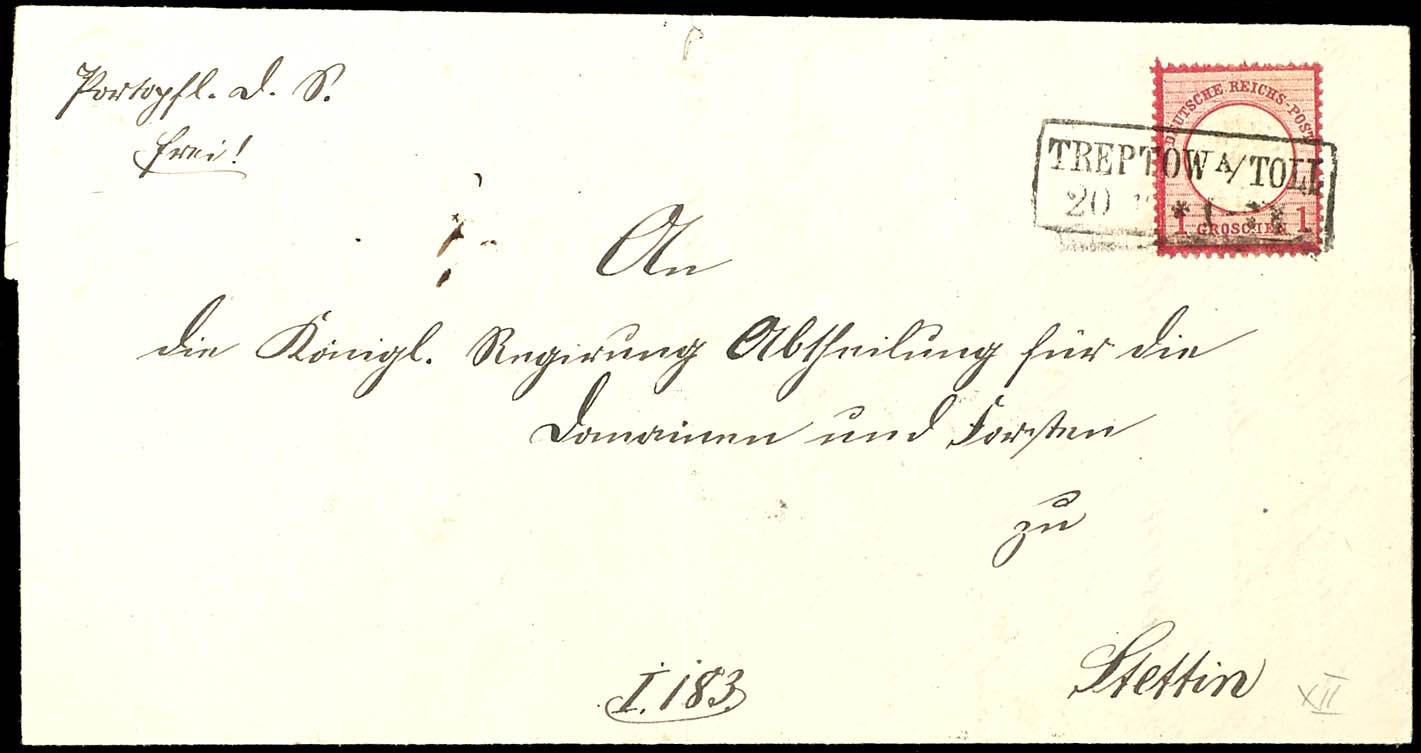 Portopfl. D. S.
frei!
DEUTSCHE REICHS-POST
1 GROSCHEN 1
TREPTOW A/TOLL
20
An
die Königl. Regirung Abtheilung für die
Domainen und Forsten
zu
Stettin
I. 183.
XII